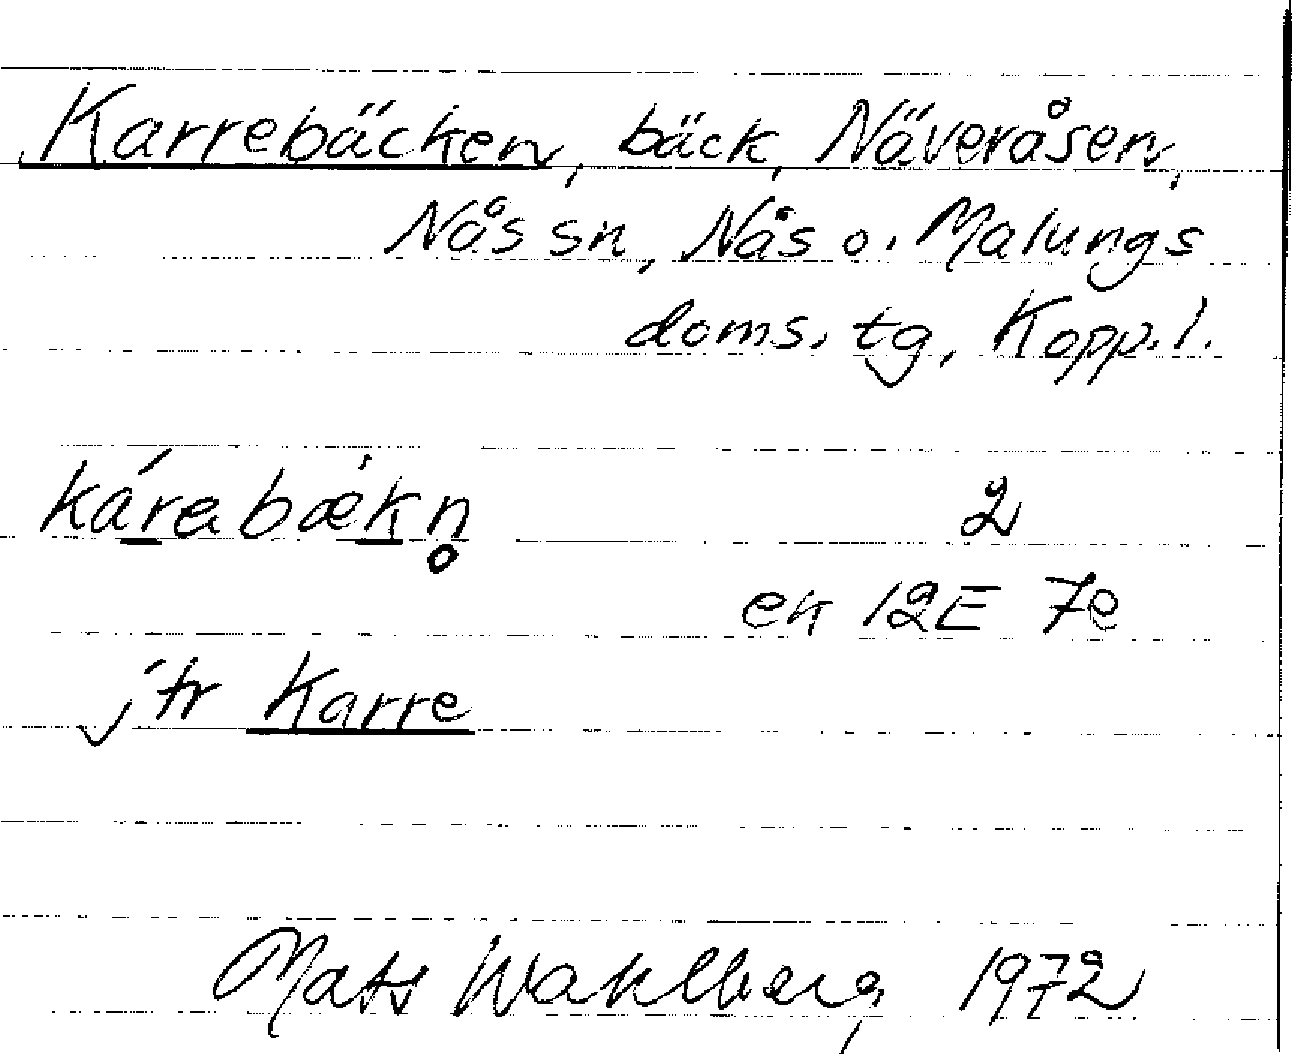 Karrebäcken, bäck, Näveråsen,
Nås sn, Nås o. Malungs
doms. tg, Kopp. l.
kárabǽkn̥ 2
ek 12E 7e
jfr Karre
Mats Wahlberg, 1972